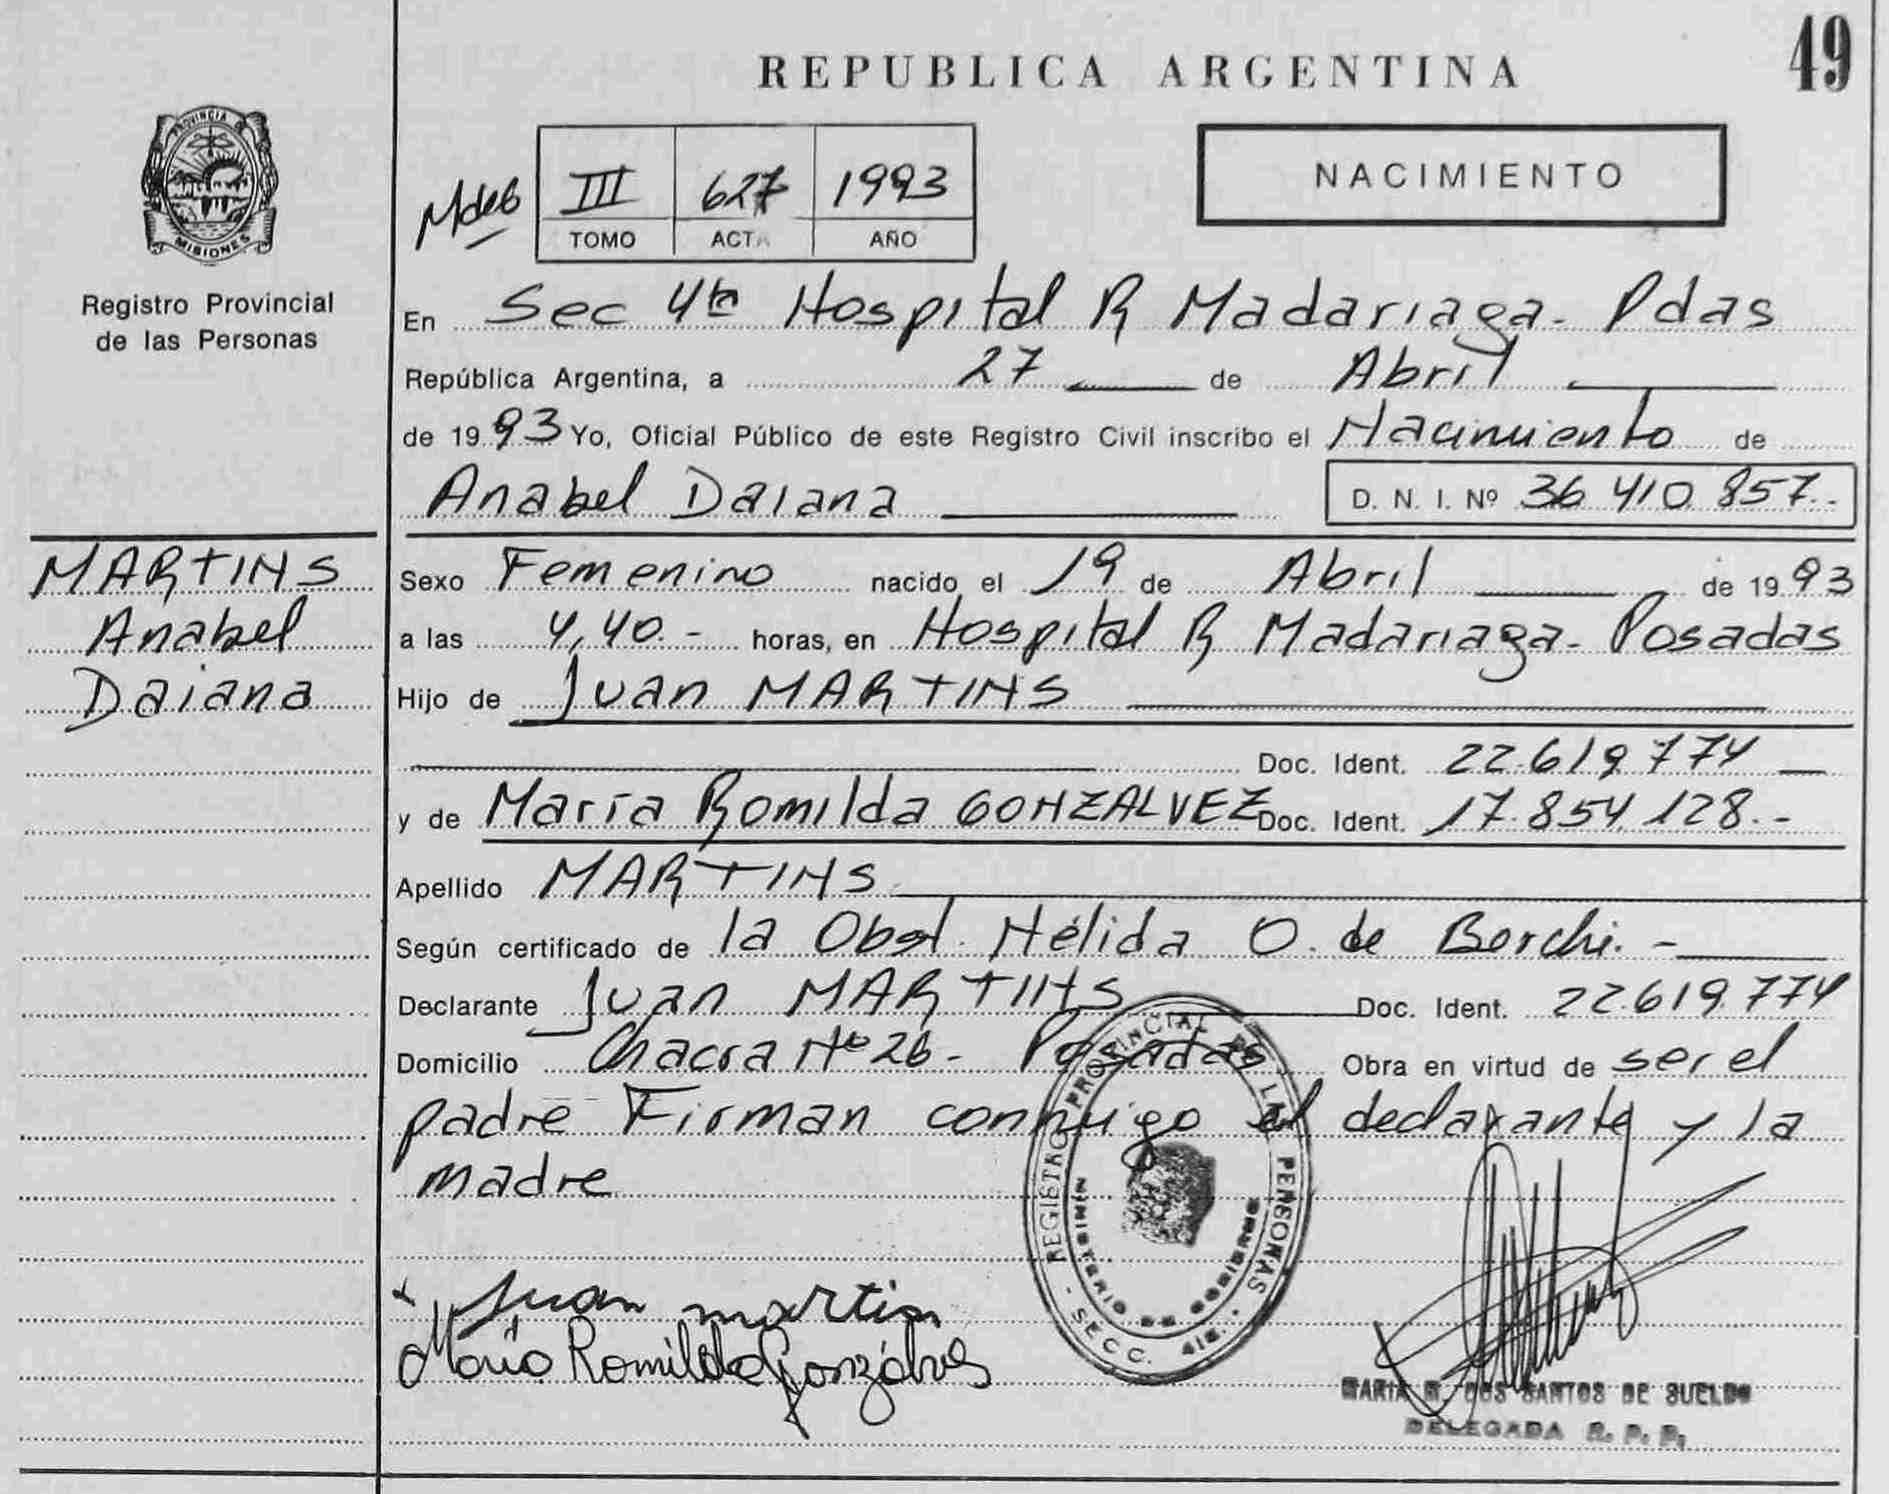 49
REPUBLICA ARGENTINA
PROVINCIA DE
MISIONES
Registro Provincial
de las Personas
III 627 1993
TOMO ACTA AÑO
NACIMIENTO
En Sec 4ta Hospital R Madariaga - Pdas
República Argentina, a 27 de Abril
de 1993 Yo, Oficial Público de este Registro Civil inscribo el Nacimiento de
Anabel Daiana D. N. I. Nº 36 410 857.-
MARTINS
Anabel
Daiana
Sexo Femenino nacido el 19 de Abril de 1993
a las 4,40.- horas, en Hospital R Madariaga - Posadas
Hijo de Juan MARTINS
Doc. Ident. 22.619.774
y de María Romilda GONZALVEZ Doc. Ident. 17.854.128.-
Apellido MARTINS
Según certificado de la Obst. Nélida O. de Borchi.-
Declarante Juan MARTINS Doc. Ident. 22.619.774
Domicilio Chacra Nº 26 - Posadas Obra en virtud de ser el
padre Firman conmigo el declarante y la
madre
REGISTRO PROVINCIAL DE LAS PERSONAS
MINISTERIO DE GOBIERNO
- SECC. 4ta. -
Juan martin
María Romilda Gonzálves
MARIA R. DOS SANTOS DE SUELDO
DELEGADA R. P. P.